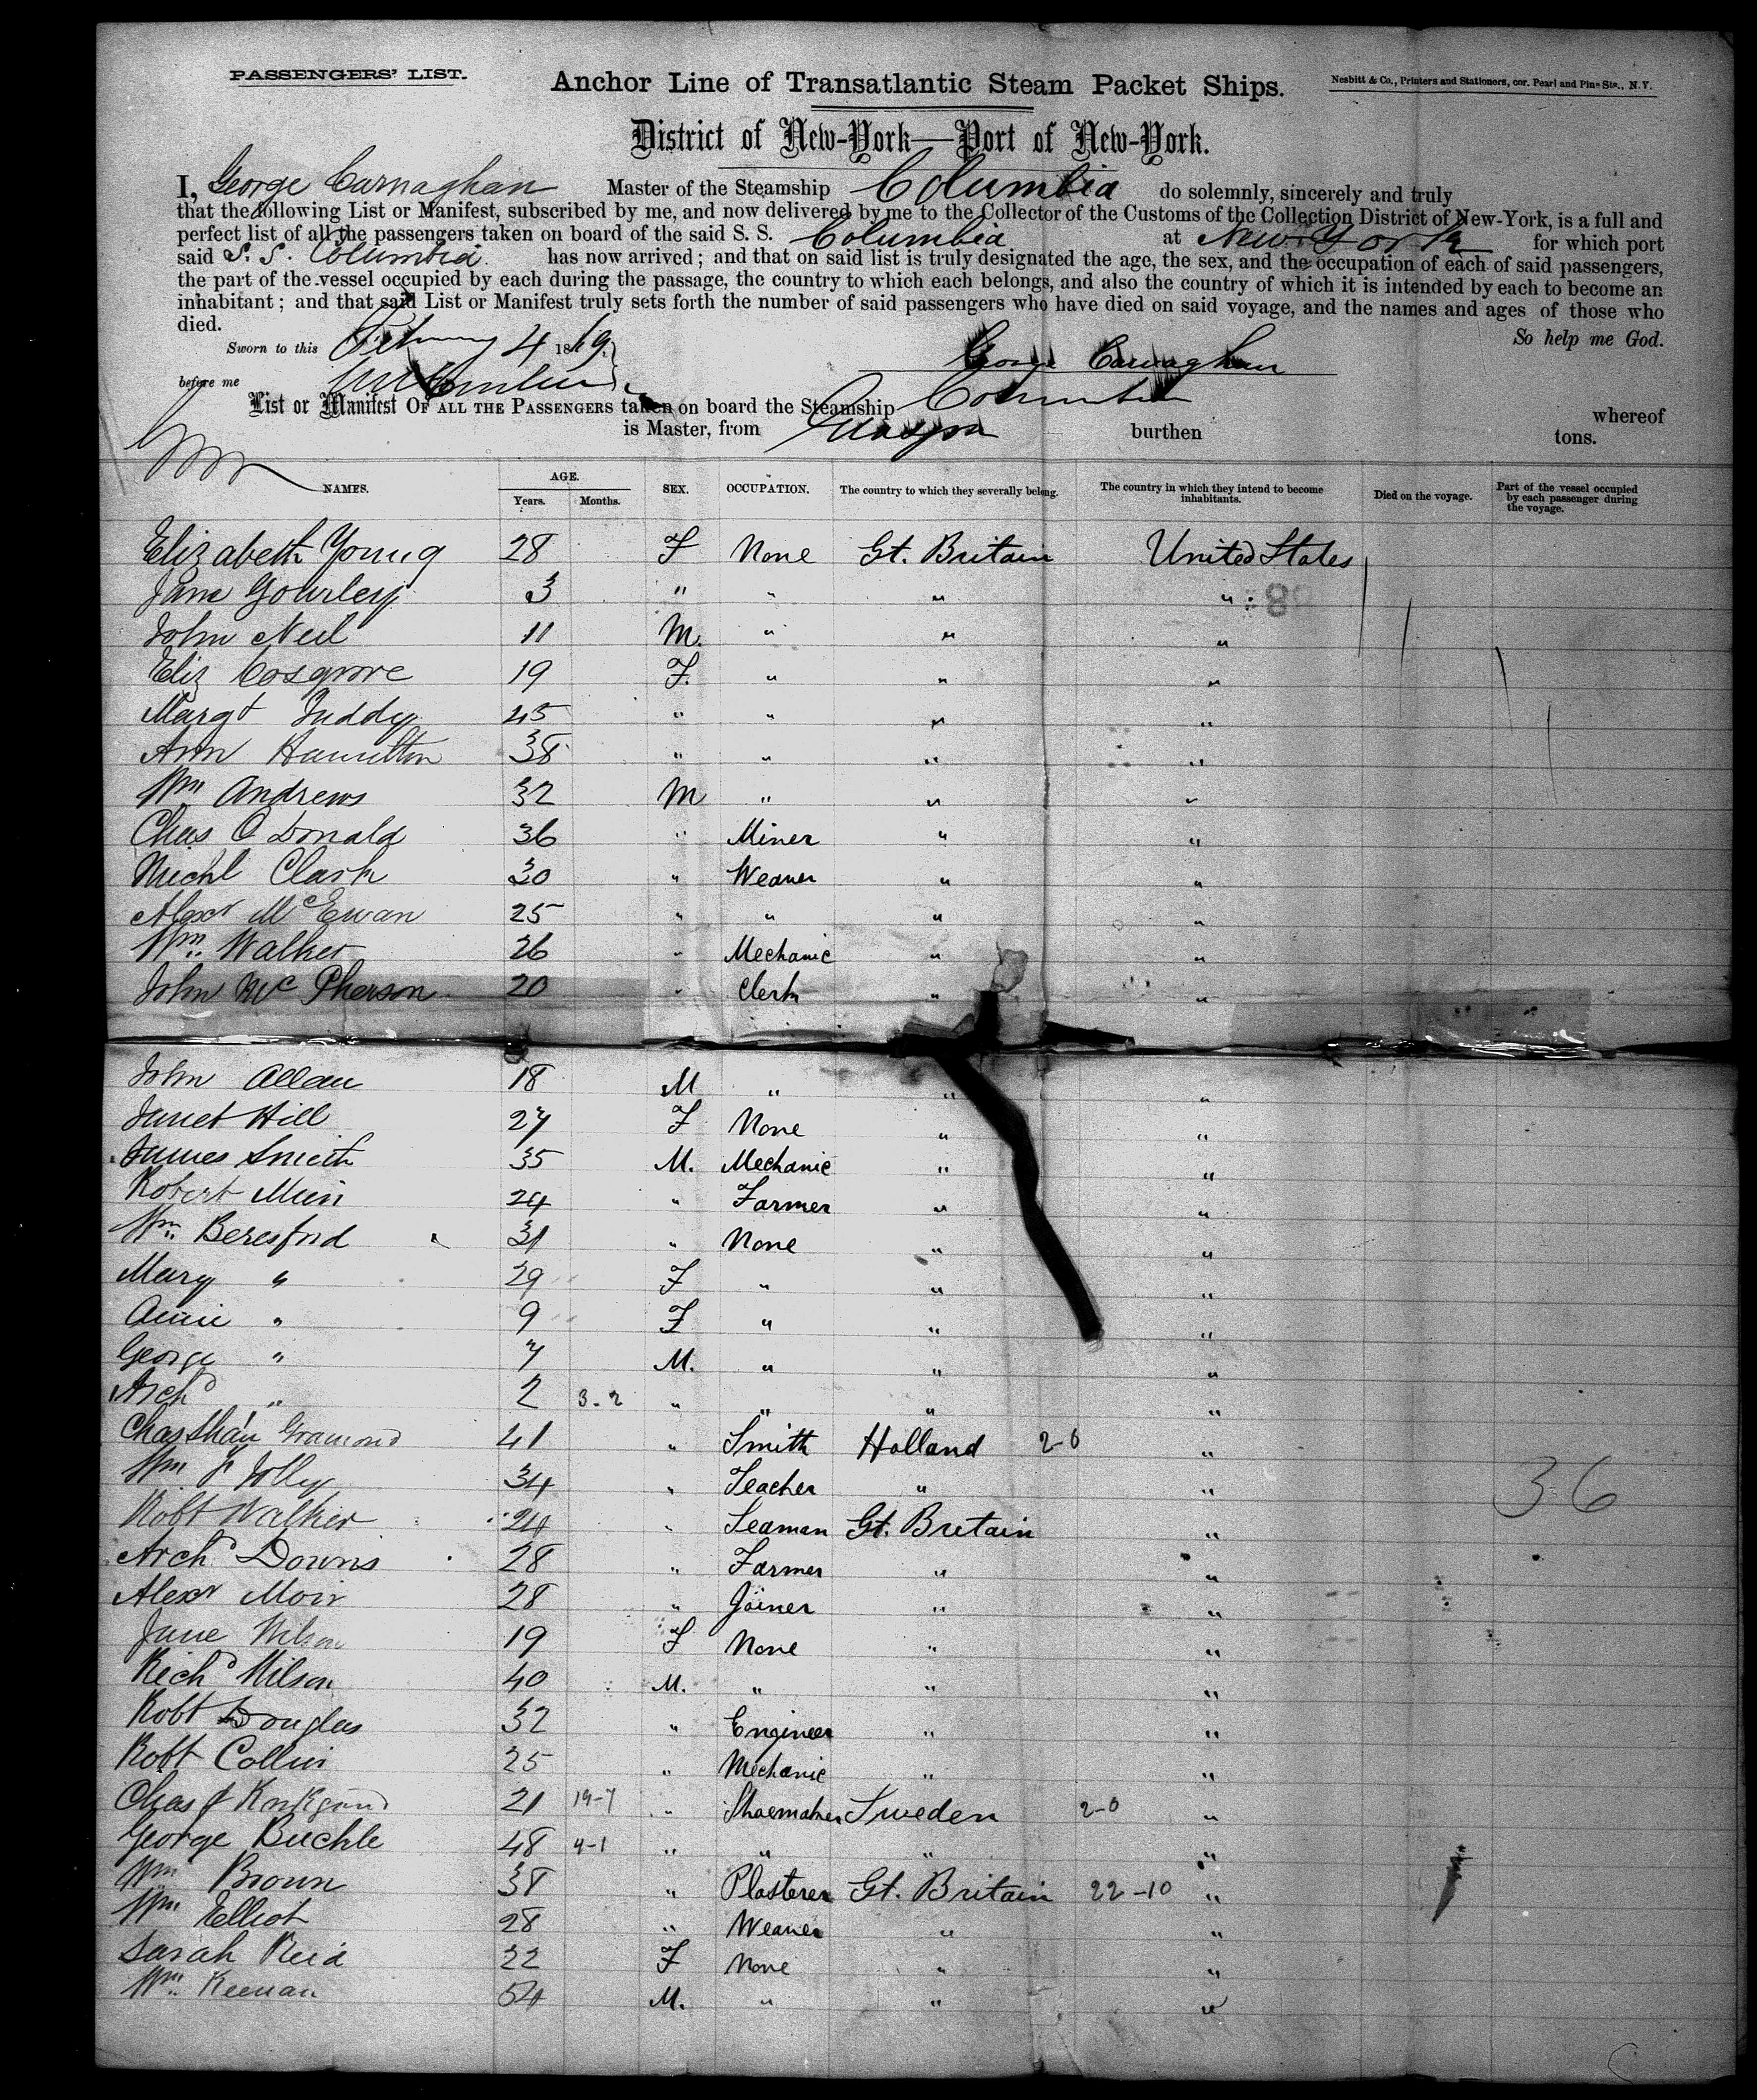 PASSENGERS' LIST.
Anchor Line of Transatlantic Steam Packet Ships.
Nesbitt & Co., Printers and Stationers, cor. Pearl and Pine Sts., N.Y.
District of New-York—Port of New-York.
I, George Carnaghan Master of the Steamship Columbia do solemnly, sincerely and truly
that the following List or Manifest, subscribed by me, and now delivered by me to the Collector of the Customs of the Collection District of New-York, is a full and
perfect list of all the passengers taken on board of the said S. S. Columbia at New York for which port
said S. S. Columbia has now arrived; and that on said list is truly designated the age, the sex, and the occupation of each of said passengers,
the part of the vessel occupied by each during the passage, the country to which each belongs, and also the country of which it is intended by each to become an
inhabitant; and that said List or Manifest truly sets forth the number of said passengers who have died on said voyage, and the names and ages of those who
died.
So help me God.
Sworn to this February 4 1869
George Carnaghan
before me
List or Manifest OF ALL THE PASSENGERS taken on board the Steamship Columbia whereof
is Master, from Glasgow burthen tons.
NAMES. AGE. Years. Months. SEX. OCCUPATION. The country to which they severally belong. The country in which they intend to become inhabitants. Died on the voyage. Part of the vessel occupied by each passenger during the voyage.
Elizabeth Young 28 F None Gt. Britain United States
Jane Gourley 3 " " " "
John Neil 11 M. " " "
Eliz Cosgrove 19 F. " " "
Margt Juddy 45 " " " "
Ann Hamilton 38 " " " "
Wm Andrews 32 M " " "
Chas O Donald 36 " Miner " "
Michl Clark 30 " Weaver " "
Alexr McEwan 25 " " " "
Wm. Walker 26 " Mechanic " "
John McPherson 20 " Clerk " "
John Allan 18 M " " "
Janet Hill 27 F None " "
James Smith 35 M. Mechanic " "
Robert Muir 24 " Farmer " "
Wm. Beresford 31 " None " "
Mary " 29 F " " "
Annie " 9 F " " "
George " 7 M. " " "
Archd " 2 3-2 " " " "
Chas 41 " Smith Holland 2-6 "
Wm F Jolly 34 " Teacher " "
36
Robt Walker 24 " Seaman Gt. Britain "
Archd Downs 28 " Farmer " "
Alexr Moir 28 " Joiner " "
Jane Wilson 19 F None " "
Richd Wilson 40 M. " " "
Robt Douglas 32 " Engineer " "
Robt Collin 25 " Mechanic " "
Chas 21 19-7 " Shoemaker Sweden 2-0 "
George Buchle 48 4-1 " " " "
Wm Brown 38 " Plasterer Gt. Britain 22-10 "
Wm Elliot 28 " Weaver " "
Sarah Reid 22 F None " "
Wm. Keenan 54 M. " " "